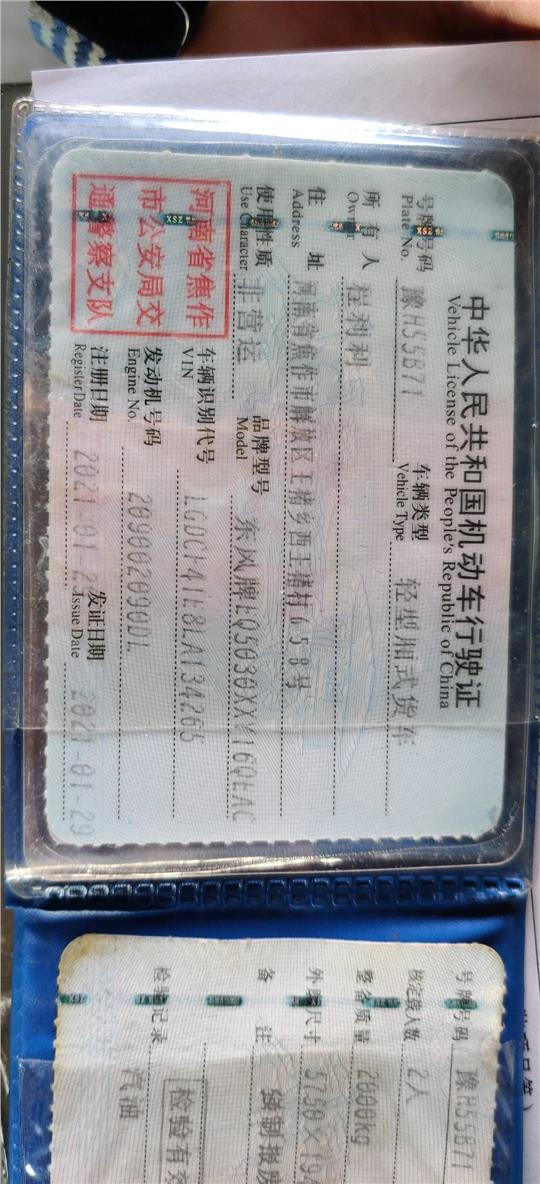 中华人民共和国机动车行驶证
Vehicle License of the People's Republic of China
号牌号码 豫H55B71 车辆类型 轻型厢式货车
Plate No. Vehicle Type
所有人 程利利
Owner
住址 河南省焦作市解放区王褚乡西王褚村658号
Address
使用性质 非营运 品牌型号 东风牌EQ5030XXY16QEAC
Use Character Model
河南省焦作
市公安局交
通警察支队
车辆识别代号 LGDCH41E8LA134265
VIN
发动机号码 20900209DDL
Engine No.
注册日期 2021-01-2 发证日期 2021-01-29
Register Date Issue Date
号牌号码 豫H55B71
核定载人数 2人
整备质量 2000kg
外廓尺寸 5750×194
备注 强制报废
检验有效
检验记录 汽油